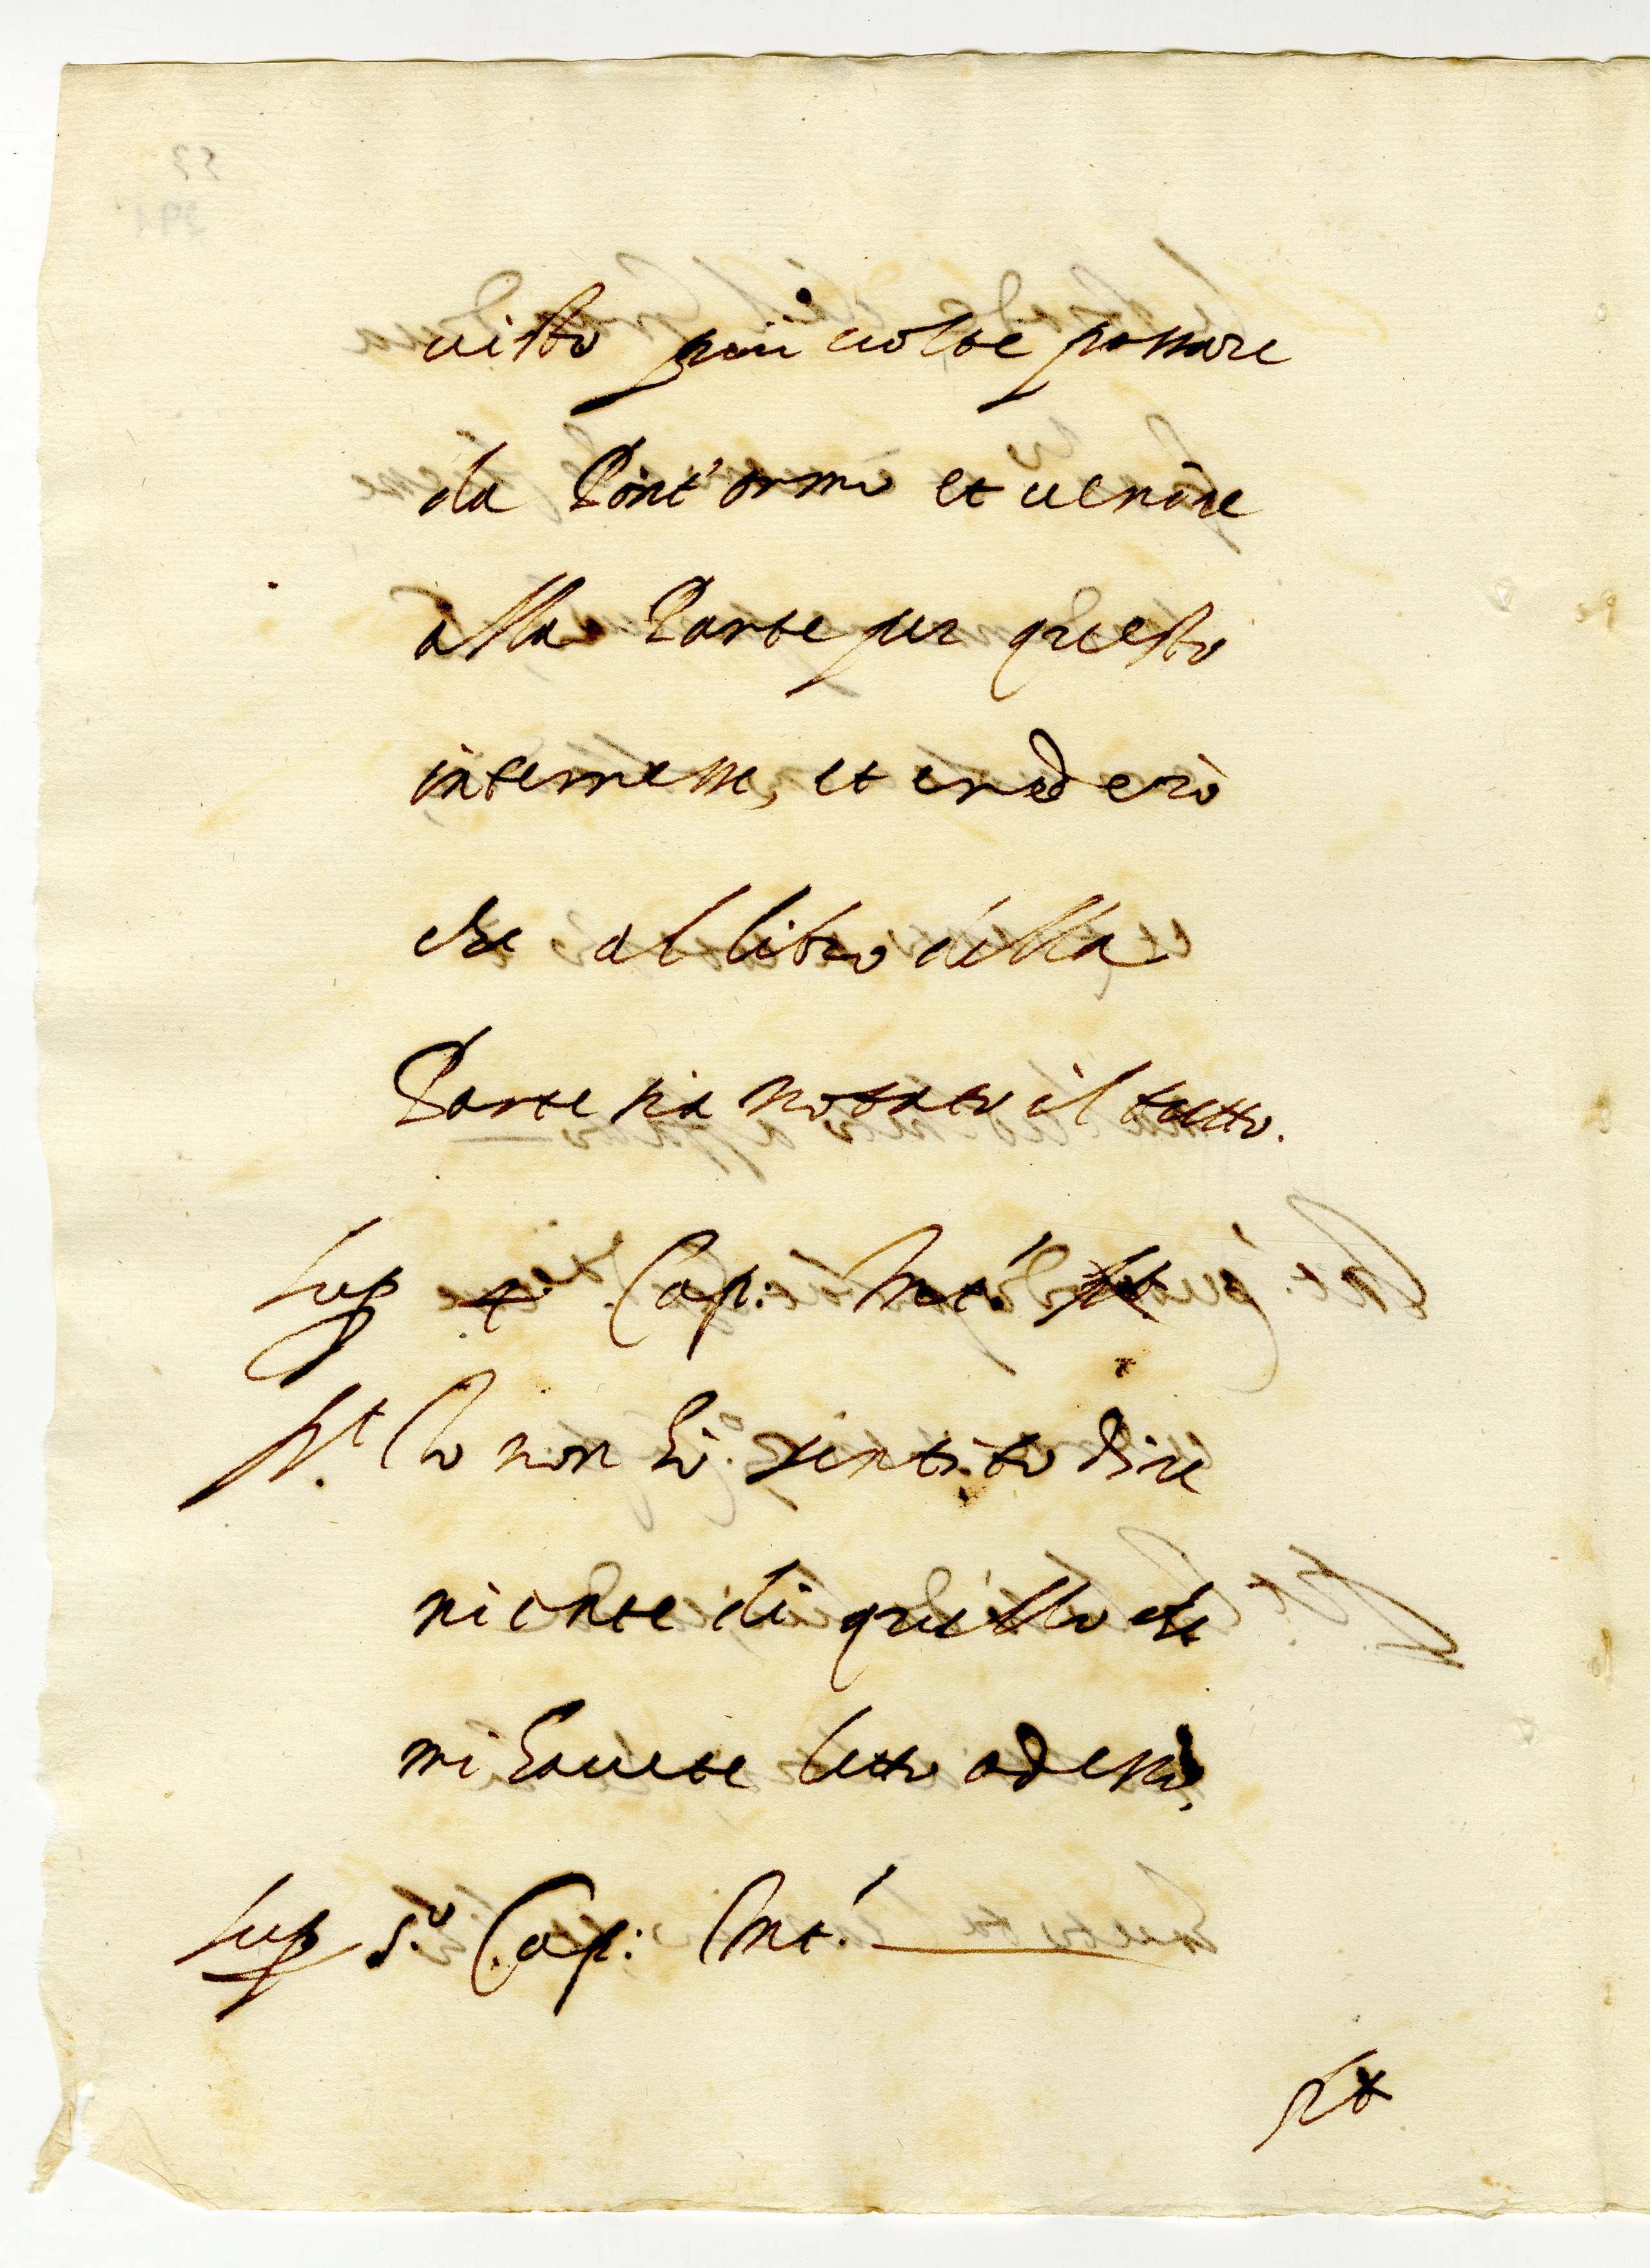 uisto più uolte passare
da Pont'ormo et uenire
alla Parte per questo
interresse, et crederò
che al libro della
Parte sia notato il tutto.
Sup 4.º Cap: Int.
Rt. Io non hò sentito dire
niente di quello che
mi hauete letto adesso.
Sup 5.º Cap: Int.
Rt